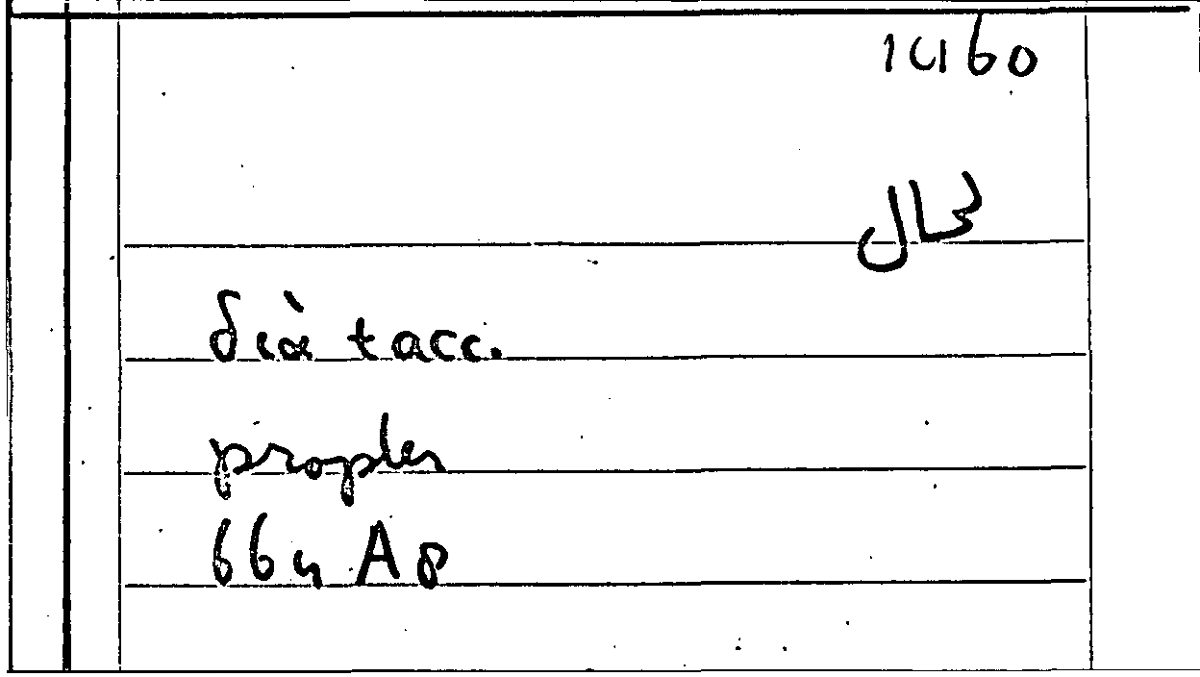 1460
لحال
διὰ + acc.
propter
664 A 8